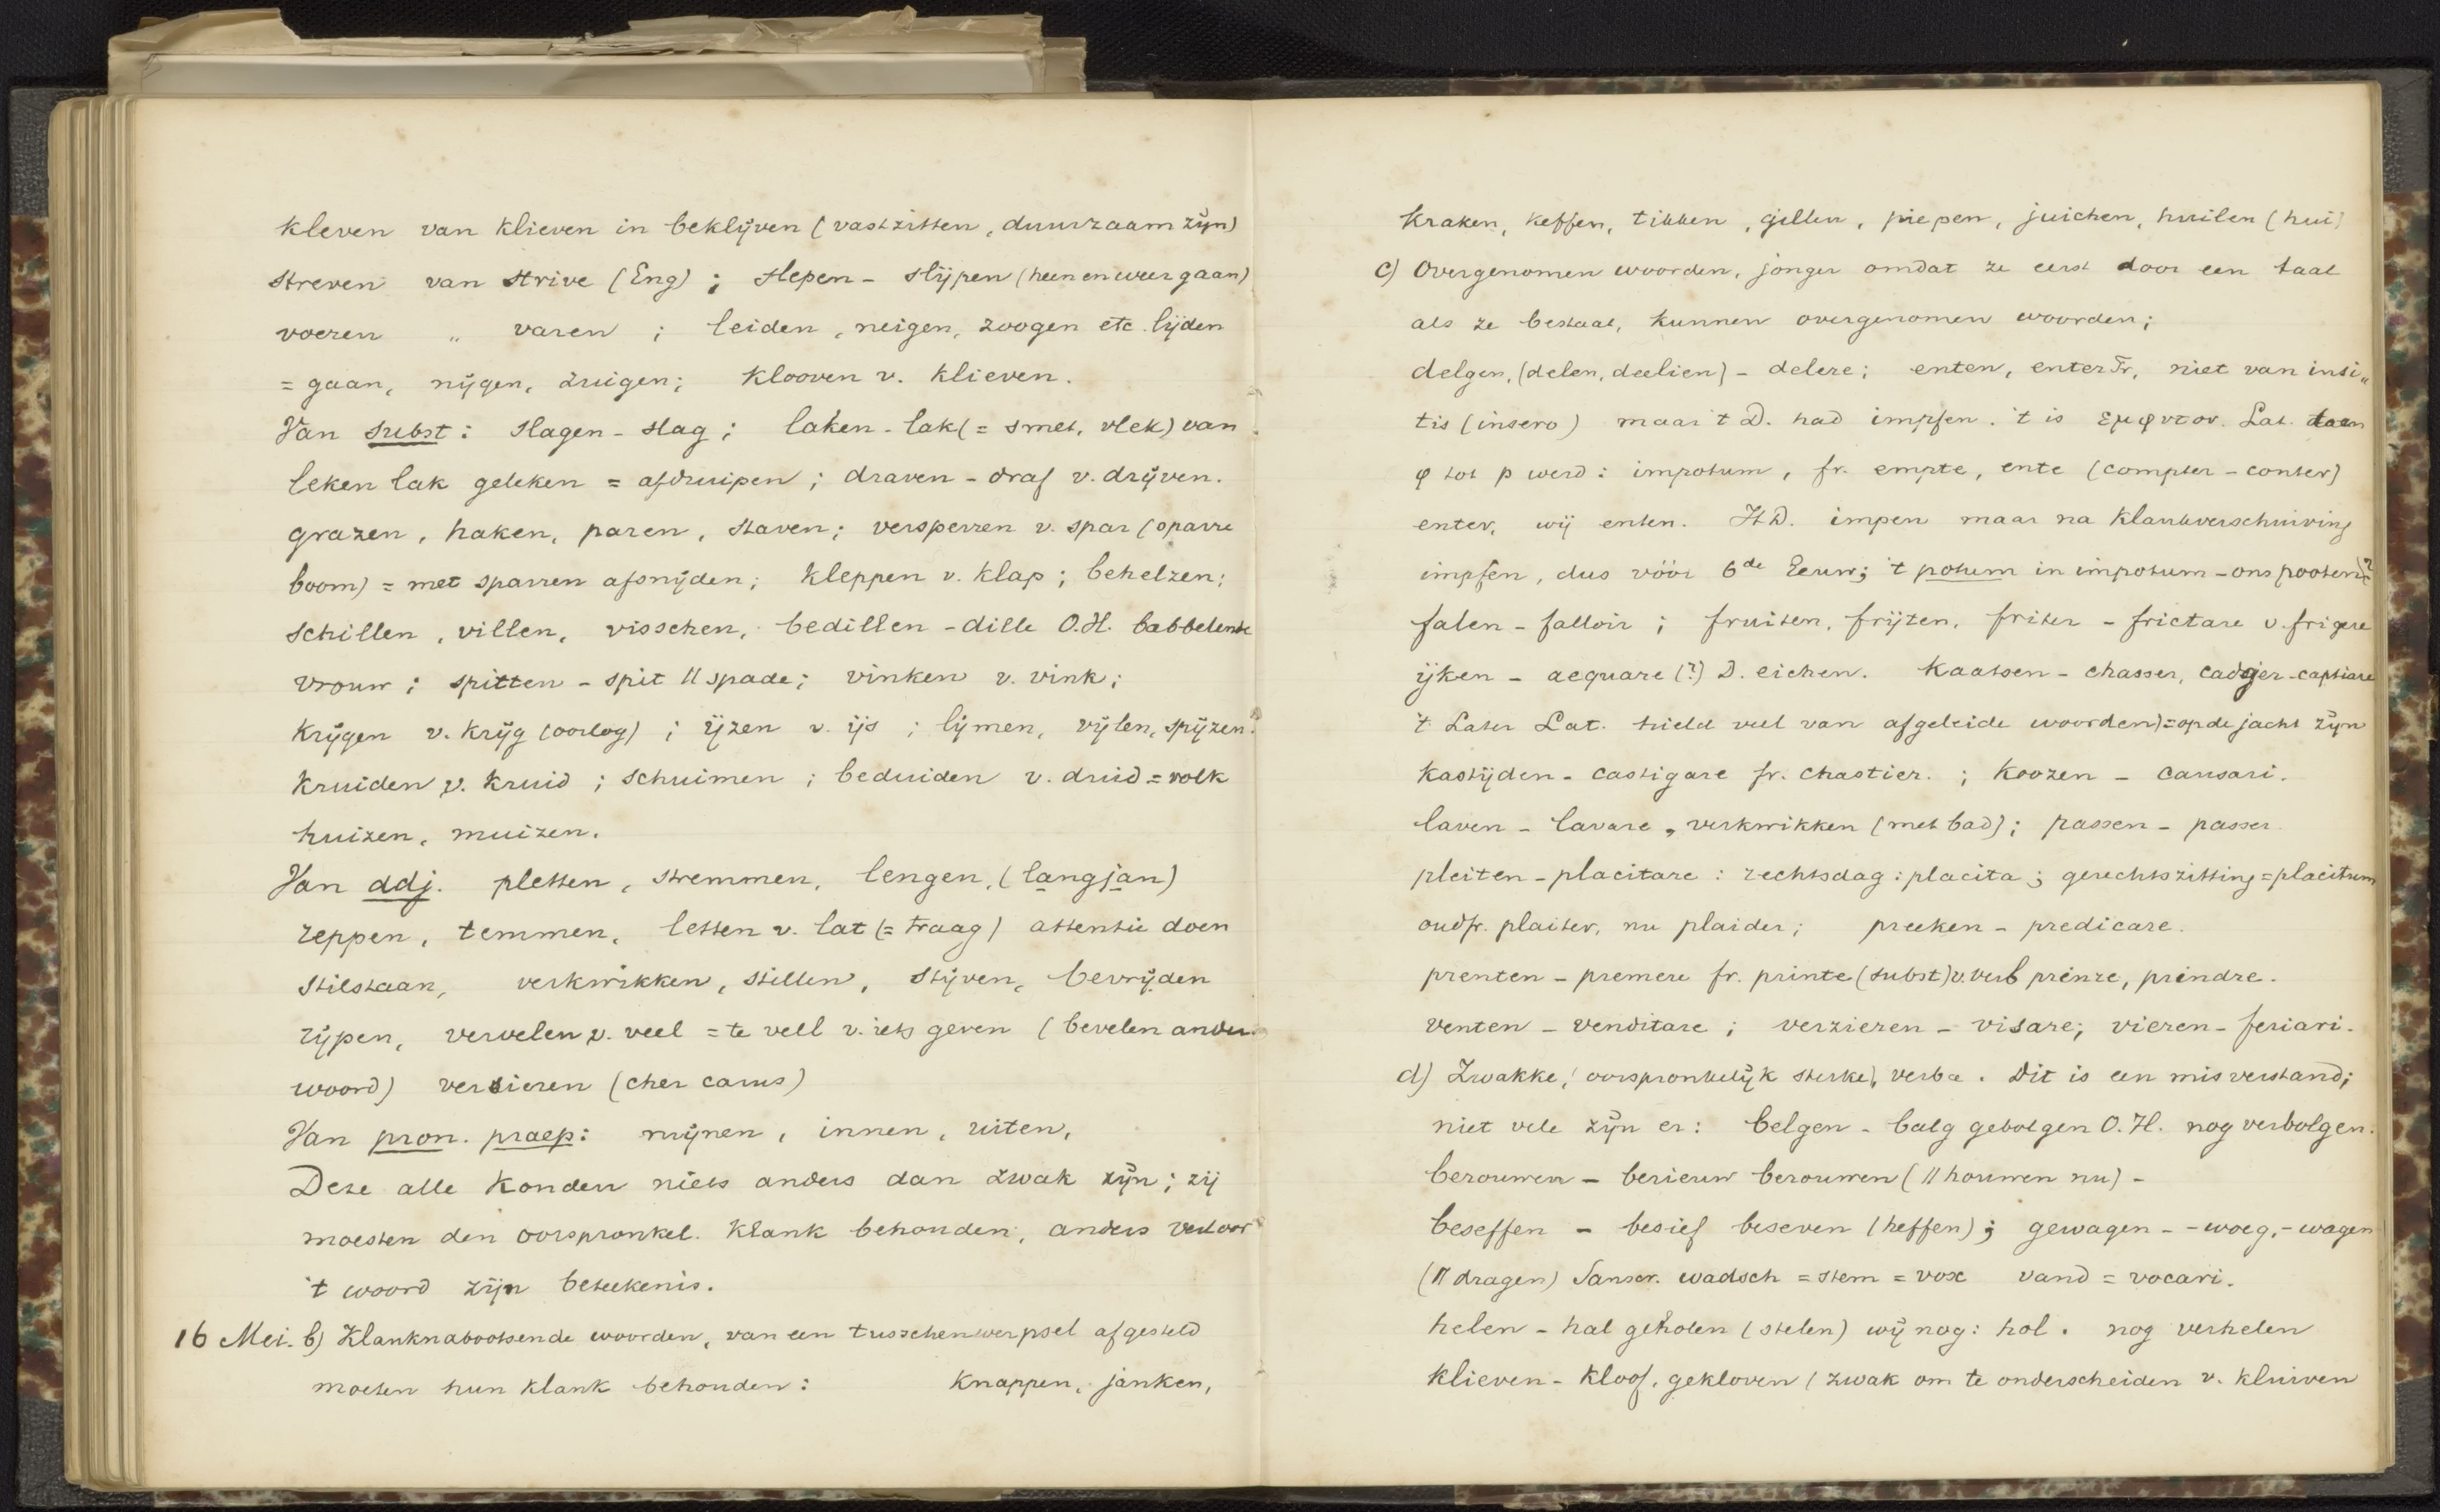 kleven van klieven in beklijven (vastzitten, duurzaam zijn)
streven van strive (Eng) ; slepen - slijpen (heen en weer gaan)
voeren „ varen ; leiden, neigen, zoogen etc. lijden
= gaan, nijgen, zuigen; klooven v. klieven.
Van subst: slagen - slag ; laken - lak (= smet, vlek) van
leken lak geleken = afdruipen ; draven - draf v. drijven.
grazen, haken, paren, staven; versperren v. spar (sparre
boom) = met sparren afsnijden; kleppen v. klap ; behelzen;
schillen, villen, visschen, bedillen - dille O.H. babbelende
vrouw ; spitten - spit // spade; vinken v. vink;
krijgen v. krijg (oorlog) ; ijzen v. ijs ; lijmen, vijlen, spijzen.
kruiden v. kruid ; schuimen ; beduiden v. duid = volk
huizen, muizen.
Van adj. pletten, stremmen, lengen, (langjan)
reppen, temmen, letten v. lat (= traag) attentie doen
stilstaan, verkwikken, stillen, stijven, bevrijden
rijpen, vervelen v. veel = te vell v. iets geven (bevelen ander
woord) versieren (cher carus)
Van pron. praep: mijnen, innen, uiten,
Deze alle konden niets anders dan zwak zijn; zij
moesten den oorspronkel. klank behouden, anders verloor
't woord zijn beteekenis.
16 Mei. b) Klanknabootsende woorden, van een tusschenwerpsel afgesteld
moeten hun klank behouden: knappen, janken,
kraken, keffen, tikken, gillen, piepen, juichen, huilen (hui)
c) Overgenomen woorden, jonger omdat ze eerst door een taal
als ze bestaat, kunnen overgenomen woorden;
delgen, (delen, deelien) - delere; enten, enter Fr, niet van insi„
tis (insero) maar 't D. had impfen. 't is εμφυτον. Lat. toen
φ tot p werd: impotum, fr. empte, ente (compter - conter)
enter, wij enten. H.D. impen maar na klankverschuiving
impfen, dus vóór 6de Eeuw; 't potum in impotum - ons pooten?
falen - falloir ; fruiten, frijten, friter - frictare v. frigere
ijken - aequare (?) D. eichen. kaatsen - chasser, cadsjer - captiare
't Later Lat. hield veel van afgeleide woorden) = op de jacht zijn
kastijden - castigare fr. chastier. ; koozen - causari.
laven - lavare, verkwikken (met bad); passen - passer
pleiten - placitare : rechtsdag : placita ; gerechtszitting = placitum
oudfr. plaiter, nu plaider; preeken - predicare.
prenten - premere fr. printe (subst) v. verb preinre, preindre.
venten - venditare ; verzieren - visare; vieren - feriari.
d) Zwakke, (oorspronkelijk sterke), verba. Dit is een misverstand;
niet vele zijn er: belgen - balg gebolgen O.H. nog verbolgen.
berouwen - berieuw berouwen (// houwen nu) -
beseffen - besief beseven (heffen) ; gewagen - - woeg, - wagen
(// dragen) Sanscr. wadsch = stem = vox vand = vocari.
helen - hal geholen (stelen) wij nog: hol. nog verhelen
klieven - kloof, gekloven (zwak om te onderscheiden v. kluiven